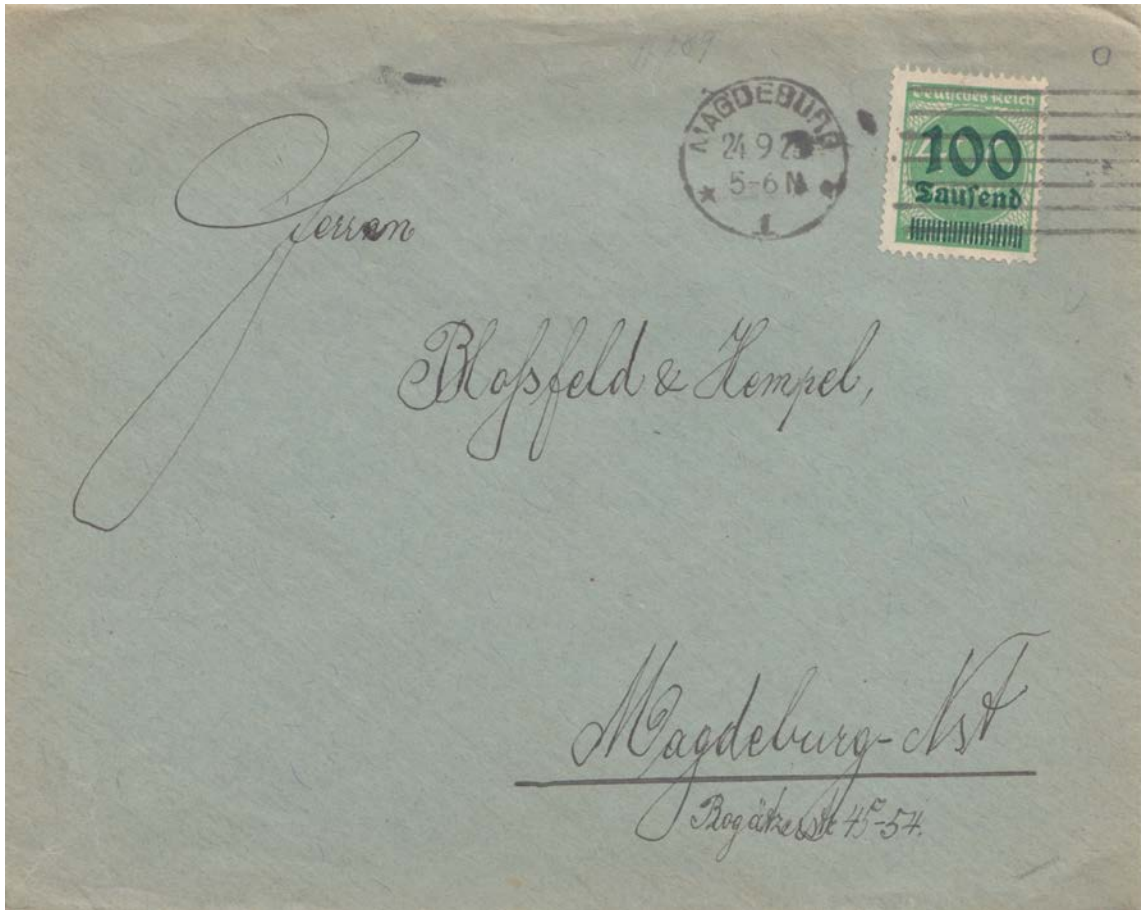 MAGDEBURG
24 9 2
5-6 N
1
Deutsches Reich
100
Tausend
Herren
Bloßfeld & Hempel,
Magdeburg-Nst
Rogätzerstr 45-54.